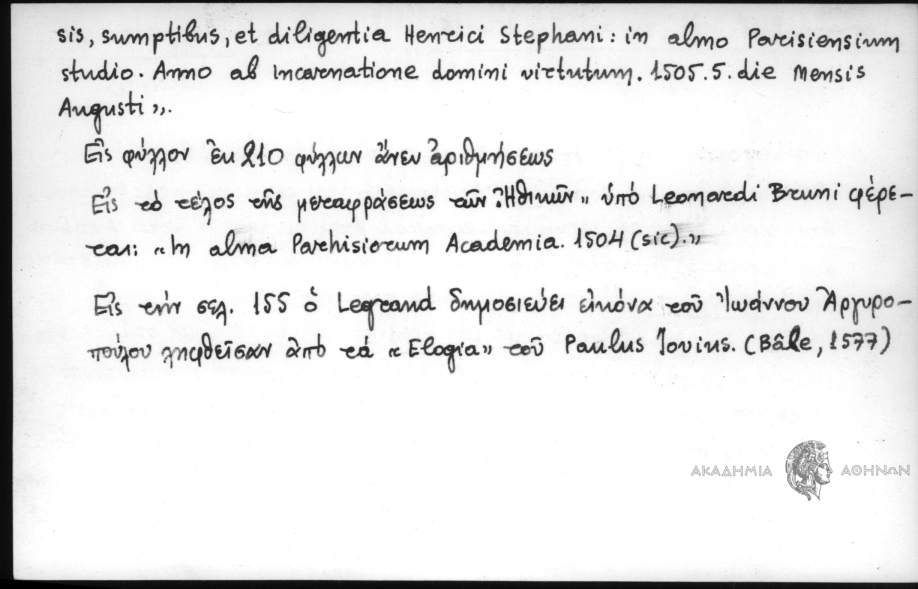 sis, sumptibus, et diligentia Henrici Stephani: in almo Parisiensium
studio. Anno ab incarnatione domini virtutum. 1505. 5. die Mensis
Augusti».
Εἰς φύλλον ἐκ 210 φύλλων ἄνευ ἀριθμήσεως
Εἰς τὸ τέλος τῆς μεταφράσεως τῶν "Ἠθικῶν" ὑπὸ Leonardi Bruni φέρε-
ται: «In alma Parhisiorum Academia. 1504 (sic).»
Εἰς τὴν σελ. 155 ὁ Legrand δημοσιεύει εἰκόνα τοῦ Ἰωάννου Ἀργυρο-
πούλου ληφθεῖσαν ἀπὸ τὰ «Elogia» τοῦ Paulus Jovius. (Bâle, 1577)
ΑΚΑΔΗΜΙΑ ΑΘΗΝΩΝ